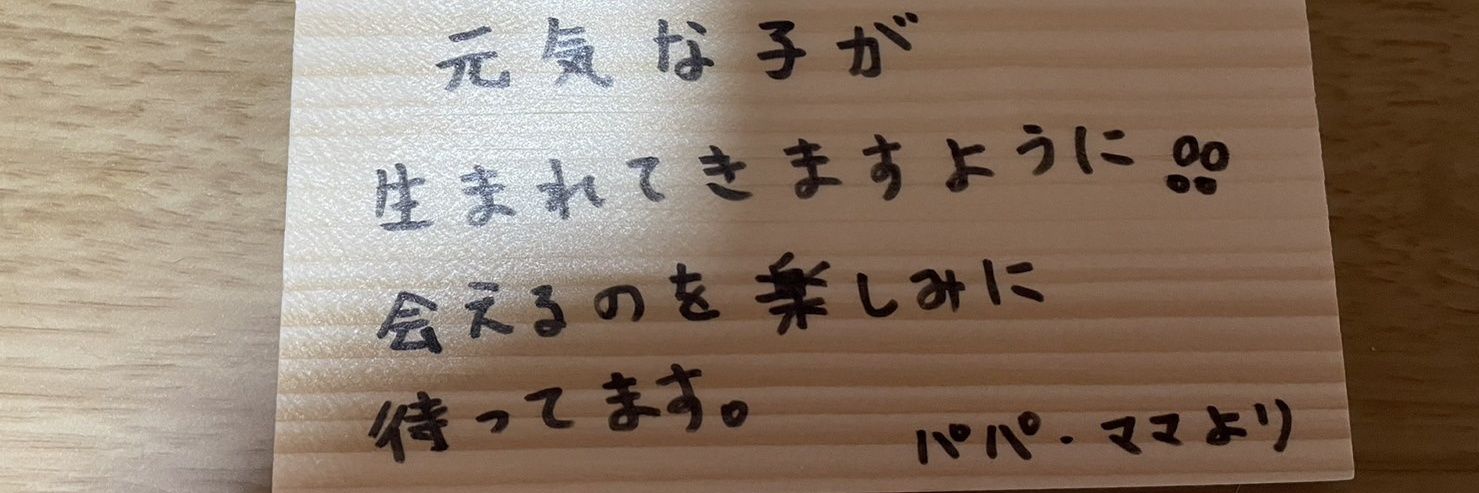 元気な子が
生まれてきますように!!
会えるのを楽しみに
待ってます。
パパ・ママより